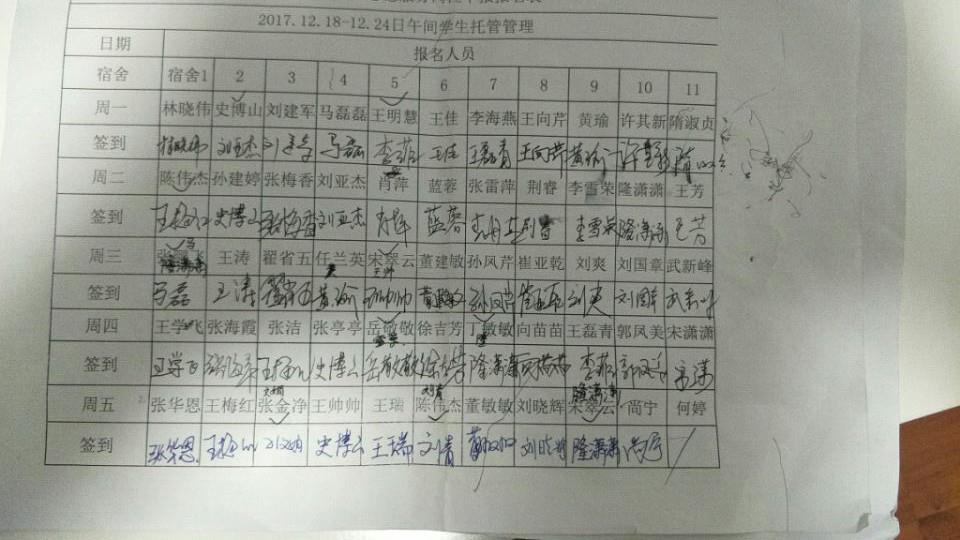 2017.12.18-12.24日午间学生托管管理
日期 报名人员
宿舍 宿舍1 2 3 4 5 6 7 8 9 10 11
周一 林晓伟 史博山 刘建军 马磊磊 王明慧 王佳 李海燕 王向芹 黄瑜 许其新 隋淑贞
签到 林晓伟 刘亚杰 刘建军 马磊 李菲 王佳 王磊青 王向芹 黄瑜
周二 陈伟杰 孙建婷 张梅香 刘亚杰 肖萍 蓝蓉 张雷萍 荆睿 李雪荣 隆潇潇 王芳
签到 王梅红 史博山 张梅香 刘亚杰 肖萍 蓝蓉 荆睿 李雪荣 隆潇潇 王芳
周三 王涛 翟省五 任兰英 宋翠云 董建敏 孙凤芹 崔亚乾 刘爽 刘国章 武新峰
隆潇潇 王帅
签到 马磊 王涛 翟省五 黄瑜 王帅帅 董建敏 孙凤芹 崔亚乾 刘爽 刘国章 武新峰
周四 王学飞 张海霞 张洁 张亭亭 岳敬敬 徐吉芳 丁敏敏 向苗苗 王磊青 郭凤美 宋潇潇
签到 王学飞 张海霞 王梅红 史博山 岳敬敬 徐吉芳 隆潇潇 向苗苗 李菲 郭凤美 宋潇
刘清 隆潇潇
周五 张华恩 王梅红 张金净 王帅帅 王瑞 陈伟杰 董敏敏 刘晓辉 宋翠云 尚宁 何婷
签到 张华恩 王梅红 史博山 王瑞 刘清 刘晓辉 隆潇潇 尚宁